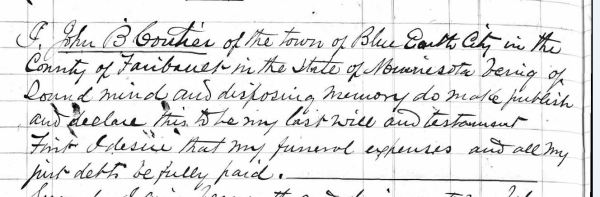 I, John B Coutier of the town of Blue Earth City in the
County of Faribault in the State of Minnesota being of
Sound mind and disposing memory do make publish
and declare this to be my last will and testament
First I desire that my funeral expenses and all my
just debts be fully paid.